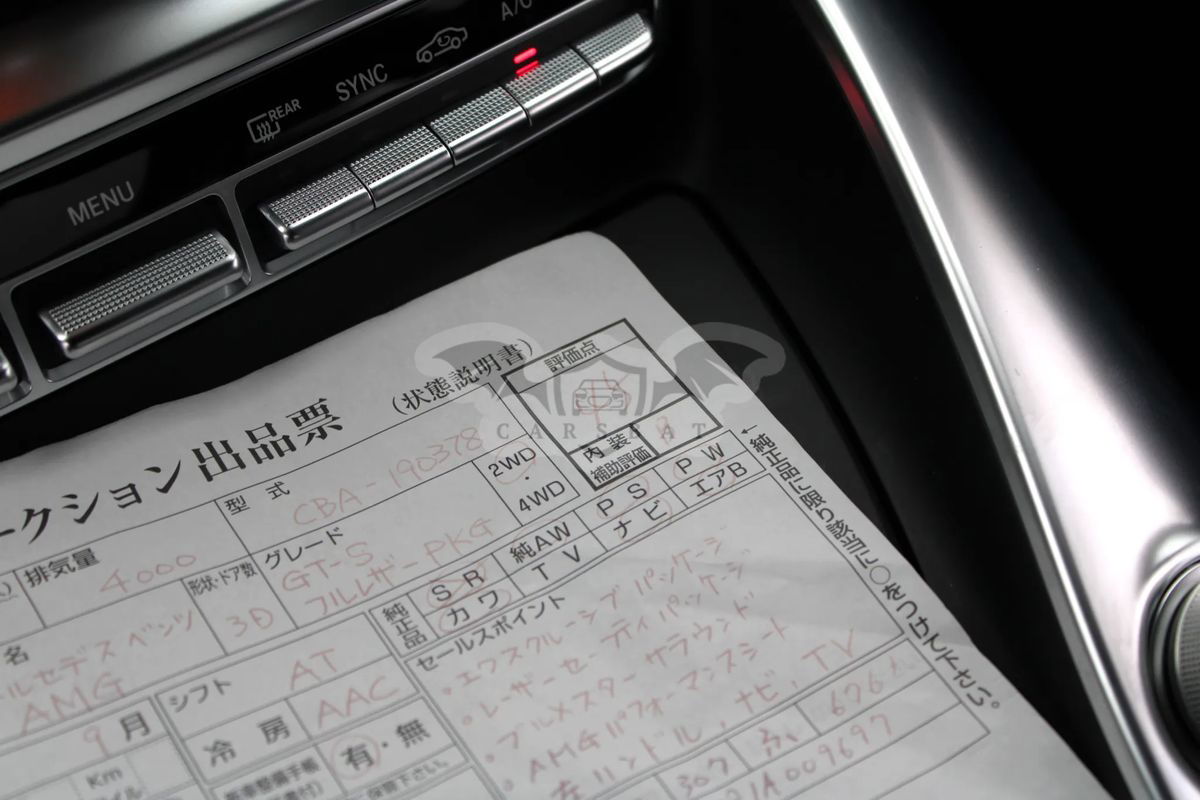 A/C
SYNC
REAR
MENU
ークション出品票
(状態説明書)
評価点
内装
補助評価
型式
CBA-190378
2WD
・
4WD
排気量
4000
形状・ドア数
3D
グレード
GT-S
フルレザーPKG
純正品
SR
純AW
PS
PW
カワ
TV
ナビ
エアB
←純正品に限り該当に○をつけて下さい。
セールスポイント
・エクスクルーシブパッケージ
・レーザーセーフティパッケージ
・ブルメスターサラウンド
・AMGパフォーマンスシート
・左ハンドル、ナビ、TV
名
ルセデスベンツ
AMG
シフト
AT
9月
冷房
AAC
Km
有・無
307
CARSEAT